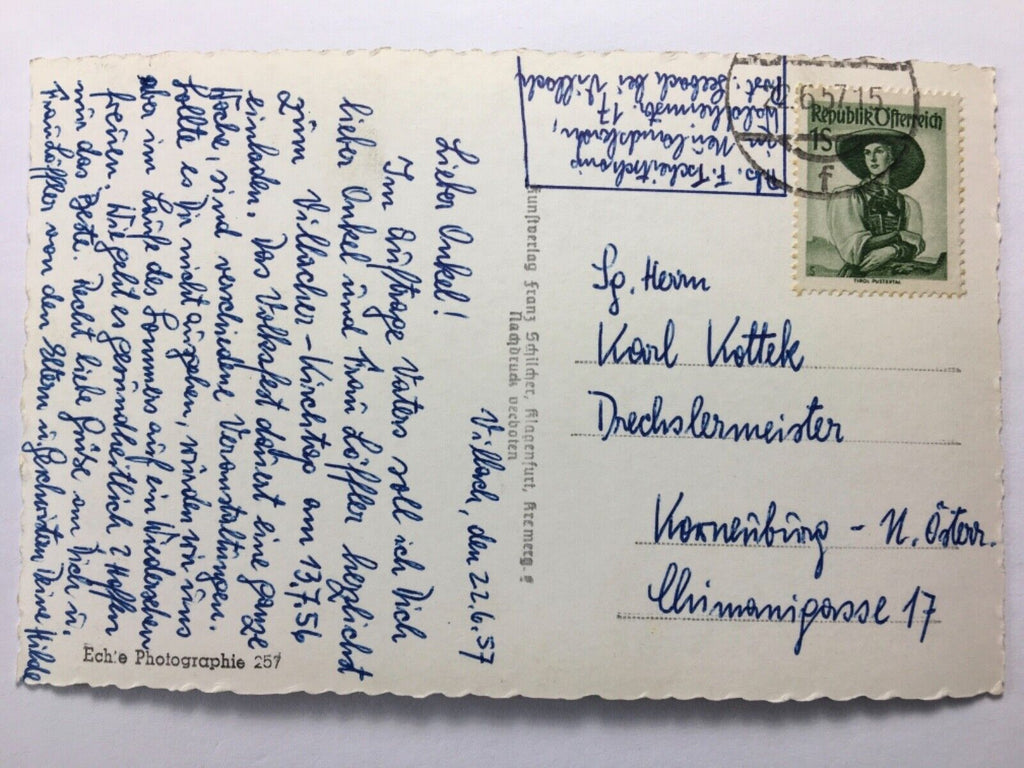 Villach, den 22.6.57
Lieber Onkel!
Im Auftrage Vaters soll ich Dich
lieber Onkel und Frau Löffler herzlichst
zum Villacher-Kirchtag am 13.7.56
einladen. Das Volksfest dauert eine ganze
Woche, sind verschiedene Veranstaltungen.
Sollte es Dir nicht ausgehen, würden wir uns
aber im Laufe des Sommers auf ein Wiedersehen
freuen. Wie geht es gesundheitlich? Hoffen
nur das Beste. Recht liebe Grüße an Dich u.
Frau Löffler von den Eltern u. Geschwistern Deine Hilde
Echte Photographie 257
Kunstverlag Franz Schilcher, Klagenfurt, Kremerg. 
Nachdruck verboten
Abs. F. Tscheitschonig
in Neulandskron,
Waldheimstr. 17
Post: Seebach bei Villach
22.6.57.15
f
Republik Österreich
1S
TIROL PUSTERTAL
Sp. Herrn
Karl Kottek
Drechslermeister
Korneuburg - N. Österr.
Chimanigasse 17